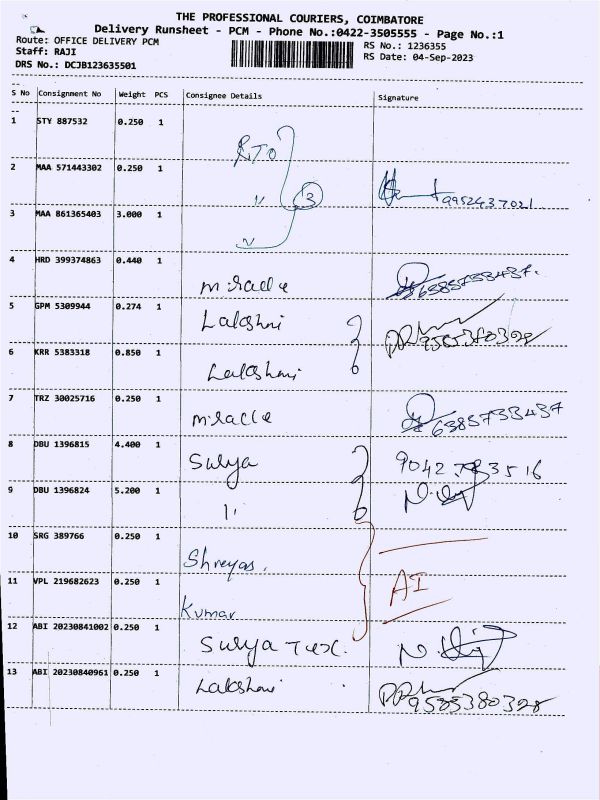 THE PROFESSIONAL COURIERS, COIMBATORE
Delivery Runsheet - PCM - Phone No.:0422-3505555 - Page No.:1
Route: OFFICE DELIVERY PCM
RS No.: 1236355
Staff: RAJI
RS Date: 04-Sep-2023
DRS No.: DCJB123635501
S No Consignment No Weight PCS Consignee Details Signature
1 STY 887532 0.250 1 RTO
2 MAA 571443302 0.250 1 " 3 9952437021
3 MAA 861365403 3.000 1
4 HRD 399374863 0.440 1 miracle 6385733437.
5 GPM 5309944 0.274 1 Lakshmi 9585380328
6 KRR 5383318 0.850 1 Lakshmi
7 TRZ 30025716 0.250 1 miracle 6385733437
8 DBU 1396815 4.400 1 Surya 9042783516
9 DBU 1396824 5.200 1 "
10 SRG 389766 0.250 1 Shreyas.
11 VPL 219682623 0.250 1 Kumar AI
12 ABI 20230841002 0.250 1 Surya Tex.
13 ABI 20230840961 0.250 1 Lakshmi 9585380328